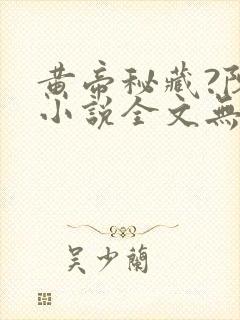 黄帝秘藏?
小说全文無
吴少蘭